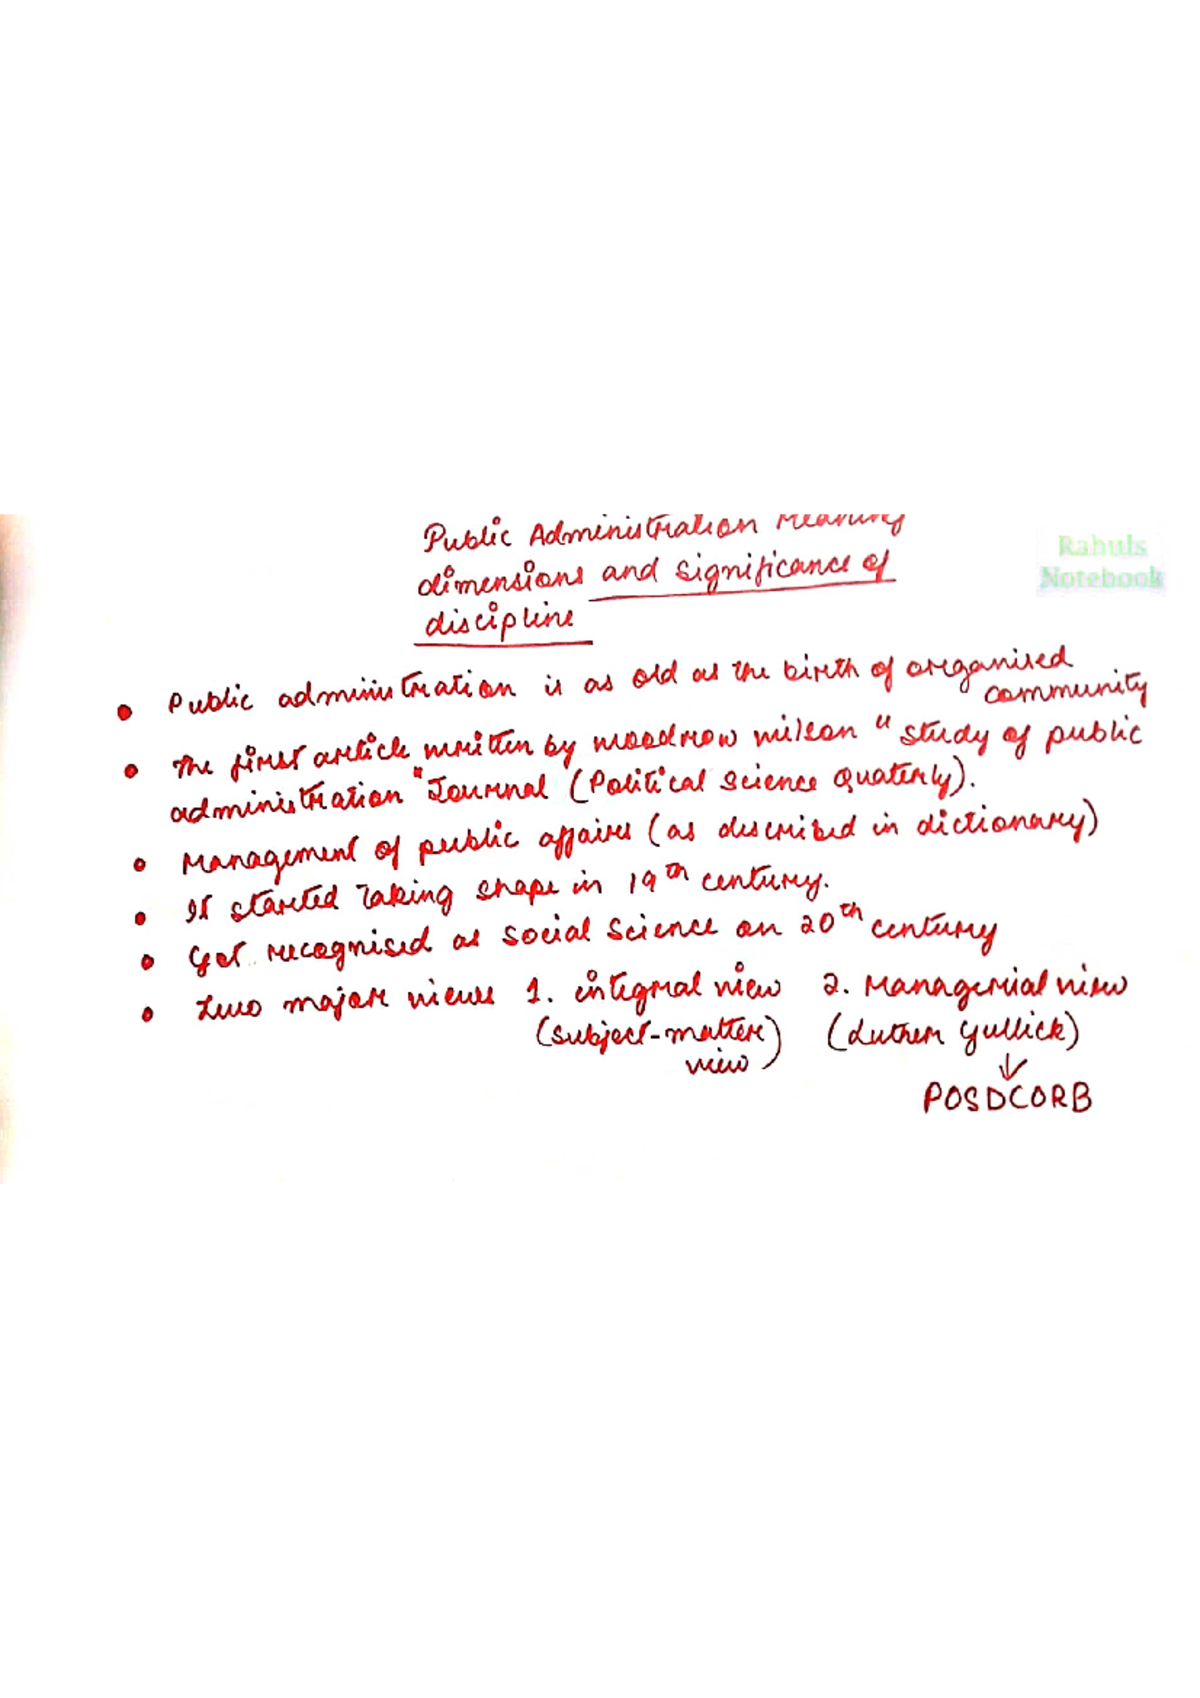 Public Administration Meaning
dimensions and significance of
discipline
Rahuls
Notebook
• Public administration is as old as the birth of organised
community
• The first article written by Woodrow Wilson "Study of public
administration" Journal (Political Science Quaterly).
• Management of public affairs (as described in dictionary)
• It started taking shape in 19th century.
• Get recognised as social science on 20th century
• Two major views 1. integral view 2. Managerial view
(subject-matter view) (Luther Gullick)
↓
POSDCORB